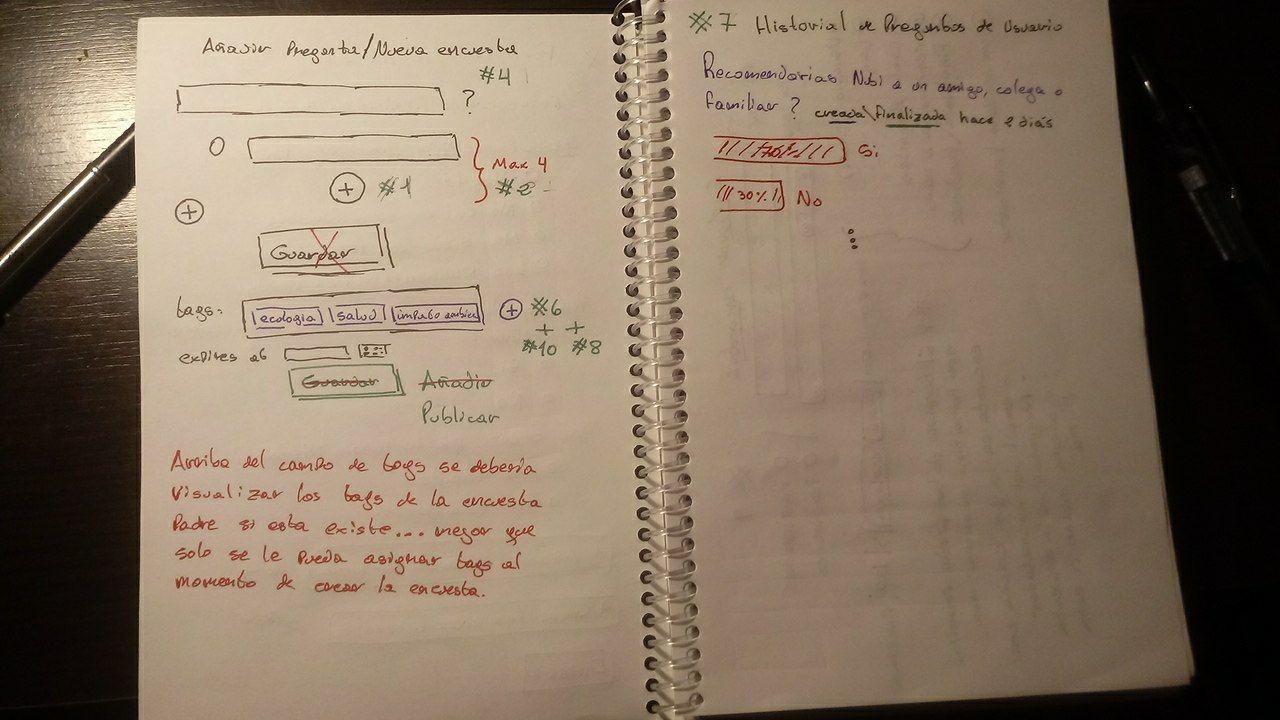 Añadir Pregunta/Nueva encuesta
#4
?
O
Max 4
+ #1 #2
+
Guardar
tags: ecologia salud +
#6
+ +
#10 #8
expires at
Guardar Añadir
Publicar
Arriba del campo de tags se debería
visualizar los tags de la encuesta
Padre si esta existe... mejor que
solo se le pueda asignar tags al
momento de crear la encuesta.
#7 Historial de Preguntas de Usuario
Recomendarias a un amigo, colega o
familiar ? creada\finalizada hace 2 diás
Si
30% No